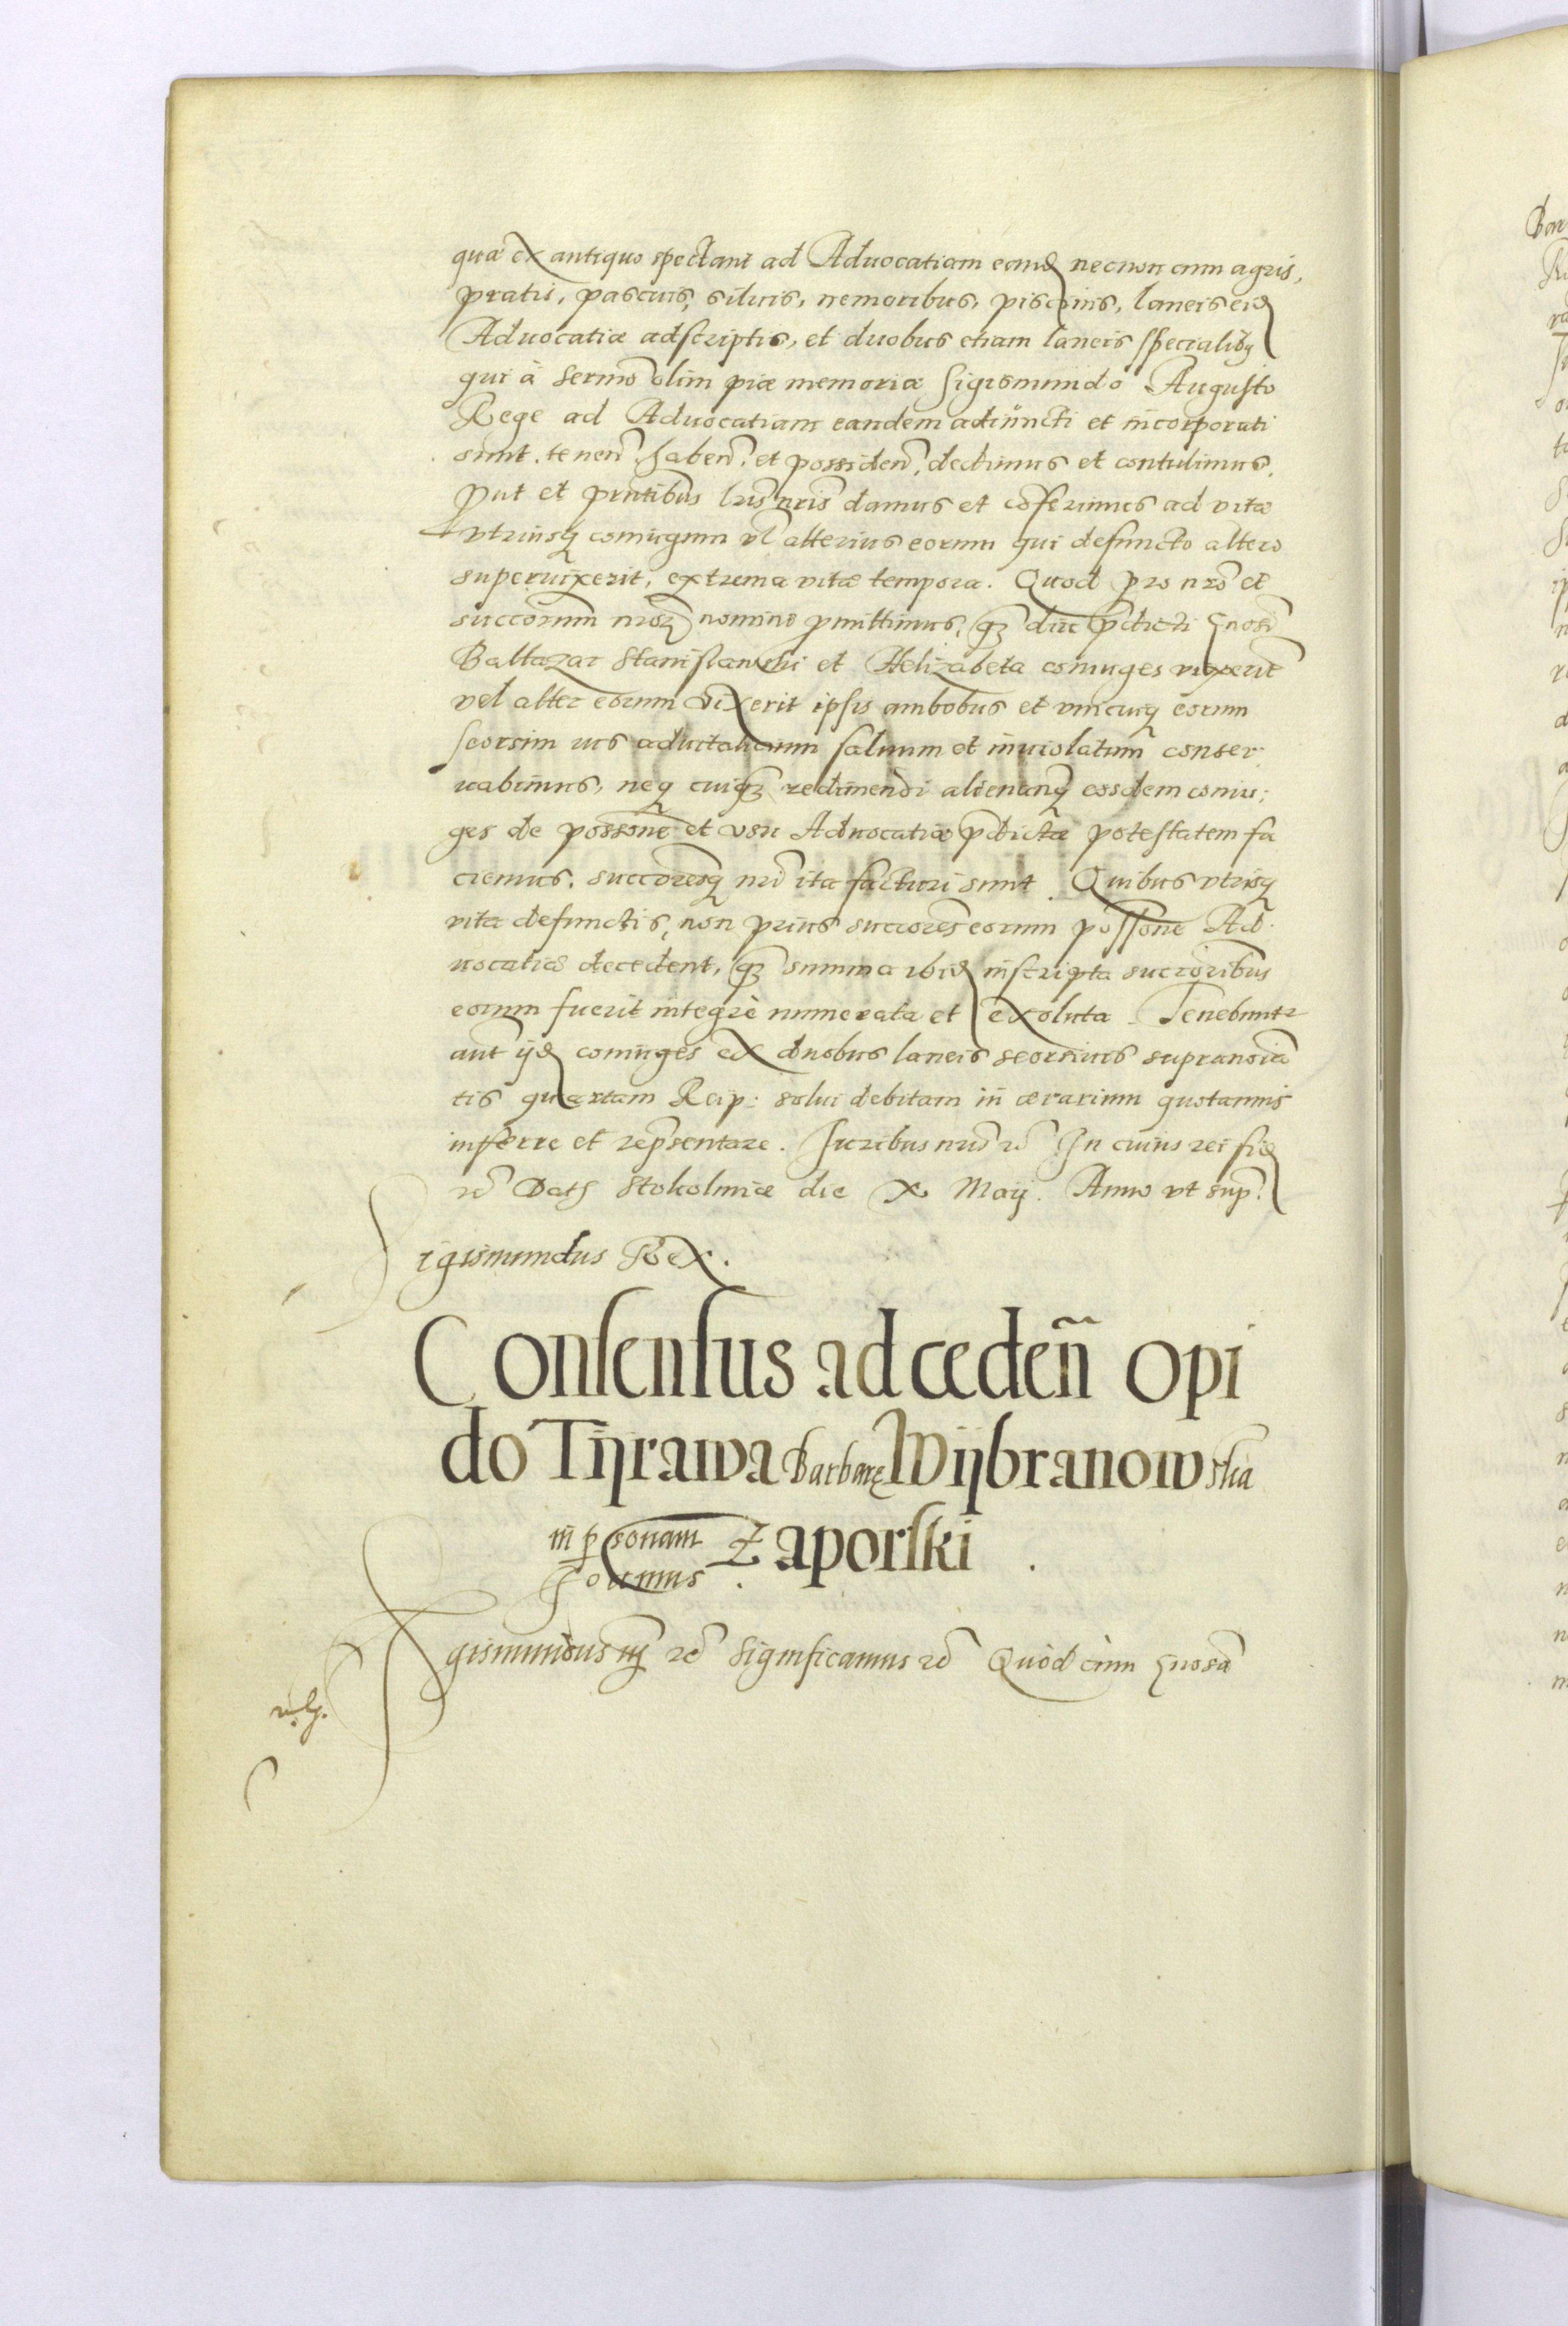 quæ ex antiquo spectant ad Aduocatiam eand necnon cum agris,
pratis, pascuis, siluis, nemoribus, piscinis, laneis eid
Aduocatiæ adscriptis, et duobus etiam laneis specialibq
qui à sermo olim piæ memoriæ Sigismundo Augusto
Rege ad Aduocatiam eandem adiuncti et incorporati
sunt. tenen̄. haben̄. et possiden̄. dedimus et contulimus.
Put et pn̄tibus lr̄is nr̄is damus et cōferimus ad vitæ
vtriusq coniugum vl̄ alterius eorum qui defuncto altero
superuixerit, extrema vitæ tempora. Quod pro nr̄o et
succōrum nr̄oꝝ nomine pmittimus, qȝ diu pdicti Gnosi
Baltazar Stanislawski et Helizabeta coniuges vixerit
vel alter eorum vixerit ipsis ambobus et vnicuiq eorum
seorsim ius aduitalicium saluum et inuiolatum conser:
uabimus, neq cuiqȝ redimendi alienanq eosdem coniu:
ges de possone et vsu Aduocatiæ pdictæ potestatem fa
ciemus. succoresq nr̄i ita facturi sunt. Quibus vtrisq
vita defunctis, non prius succores eorum possone Ad
uocatiæ decedent, qȝ summa ibid inscripta succoribus
eorum fuerit integrè numerata et exoluta. Tenebuntr
aut̄ ijd coniuges ex duobus laneis seorsiuis supranoīa
tis quartam Reip: solui debitam in ærarium quotannis
inferre et repsentare. Iuribus nr̄is rc̄ In cuius rei fid
rc̄ Dat Stokolmiæ die X Maij. Anno vt sup.
Sigismundus Rex.
Consensus ad ceden̄ opi
do Tÿrawa Barbaræ Wÿbranowska
in psonam Zaporski.
Ioannis.
Sigismundus iij rc̄ Significamus rc̄ Quòd cùm Gnosa